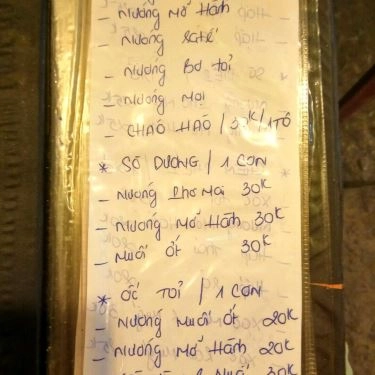 - Nướng Mỡ Hành
- Nướng Satế
- Nướng Bơ tỏi
- Nướng Mọi
- CHÁO HÀO / 35K / 1TÔ
* SÒ DƯƠNG / 1 CON
- Nướng Phomai 30K
- Nướng Mỡ Hành 30K
- Muối ớt 30K
* ỐC TỎI / 1 CON
- Nướng Muối ớt 20K
- Nướng Mỡ Hành 20K
30K